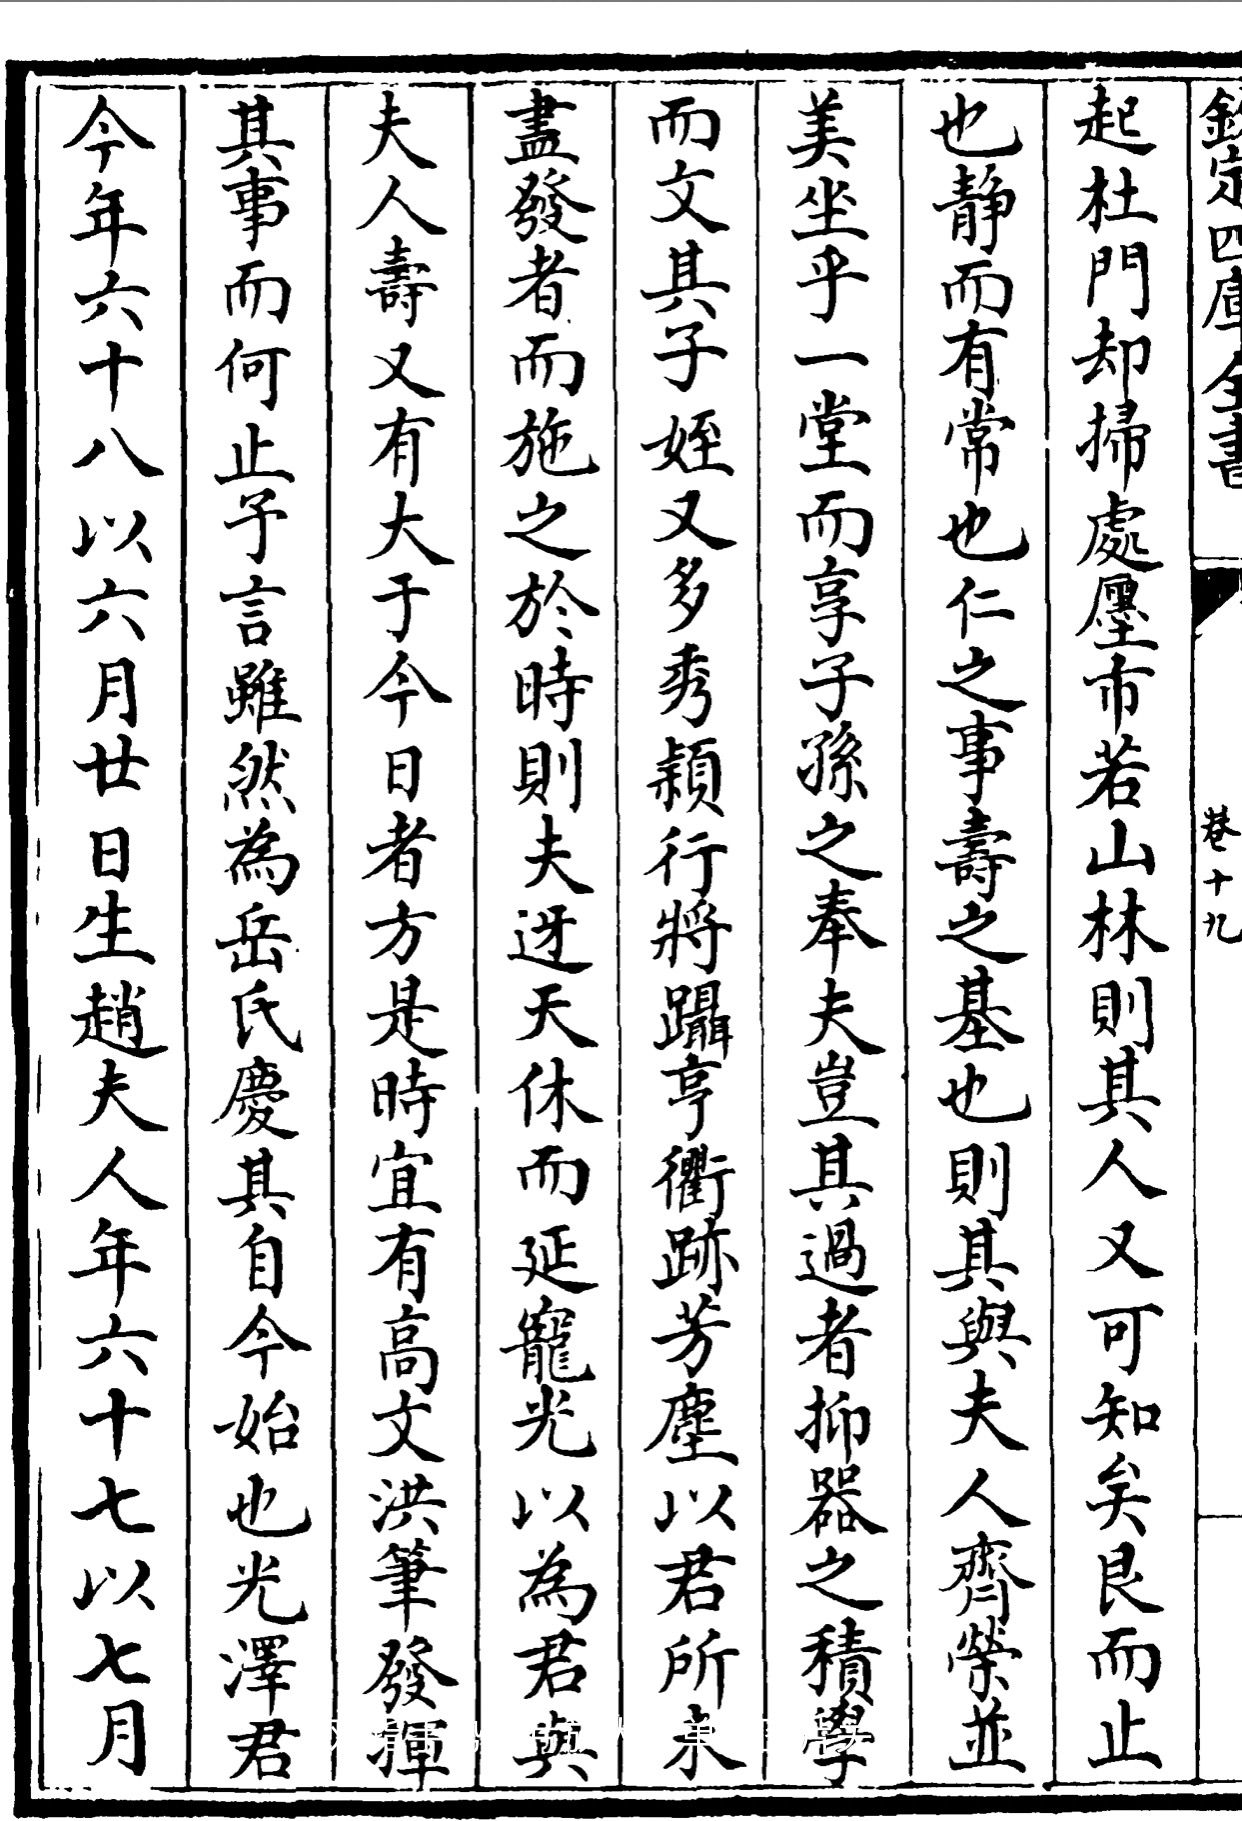 欽定四庫全書
卷十九
起杜門却掃處壥市若山林則其人又可知矣艮而止
也靜而有常也仁之事壽之基也則其與夫人齊榮並
美坐乎一堂而享子孫之奉夫豈其過者抑器之積學
而文其子姪又多秀穎行將躡亨衢跡芳塵以君所未
盡發者而施之於時則夫迓天休而延寵光以為君與
夫人壽又有大于今日者方是時宜有高文洪筆發揮
其事而何止予言雖然為岳氏慶其自今始也光澤君
今年六十八以六月廿日生趙夫人年六十七以七月